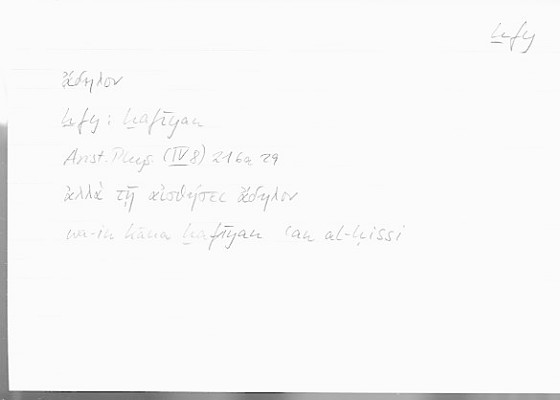 ḫfy
ἄδηλον
ḫfy: ḫafīyan
Arist. Phys. (IV 8) 216a 29
ἀλλὰ τῇ αἰσθήσει ἄδηλον
wa-in kāna ḫafīyan ʿan al-ḥissi